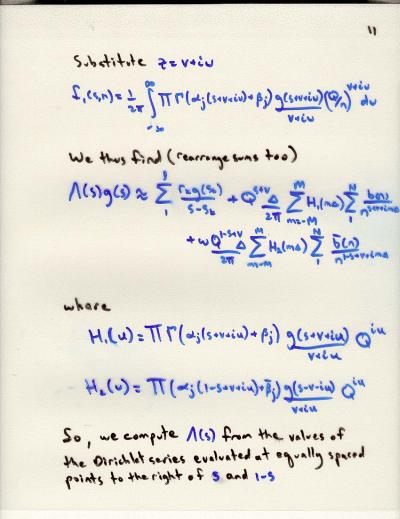 11
Substitute z = v+iu
f₁(s,n) = 1/2π ∫_{-∞}^{∞} ∏ Γ(αⱼ(s+v+iu)+βⱼ) g(s+v+iu)/(v+iu) (Q/n)^{v+iu} du
We thus find (rearrange sums too)
Λ(s)g(s) ≈ Σ_1^ℓ r_k g(s_k)/(s-s_k) + Q^{s+v} Δ/2π Σ_{m=-M}^{M} H₁(mΔ) Σ_1^N b(n)/n^{s+v+imΔ}
+ ω Q^{1-s+v} Δ/2π Σ_{m=-M}^{M} H₂(mΔ) Σ_1^N b̄(n)/n^{1-s+v+imΔ}
where
H₁(u) = ∏ Γ(αⱼ(s+v+iu)+βⱼ) g(s+v+iu)/(v+iu) Q^{iu}
H₂(u) = ∏ (αⱼ(1-s+v+iu)+β̄ⱼ) g(s-v-iu)/(v+iu) Q^{iu}
So, we compute Λ(s) from the values of
the Dirichlet series evaluated at equally spaced
points to the right of s and 1-s